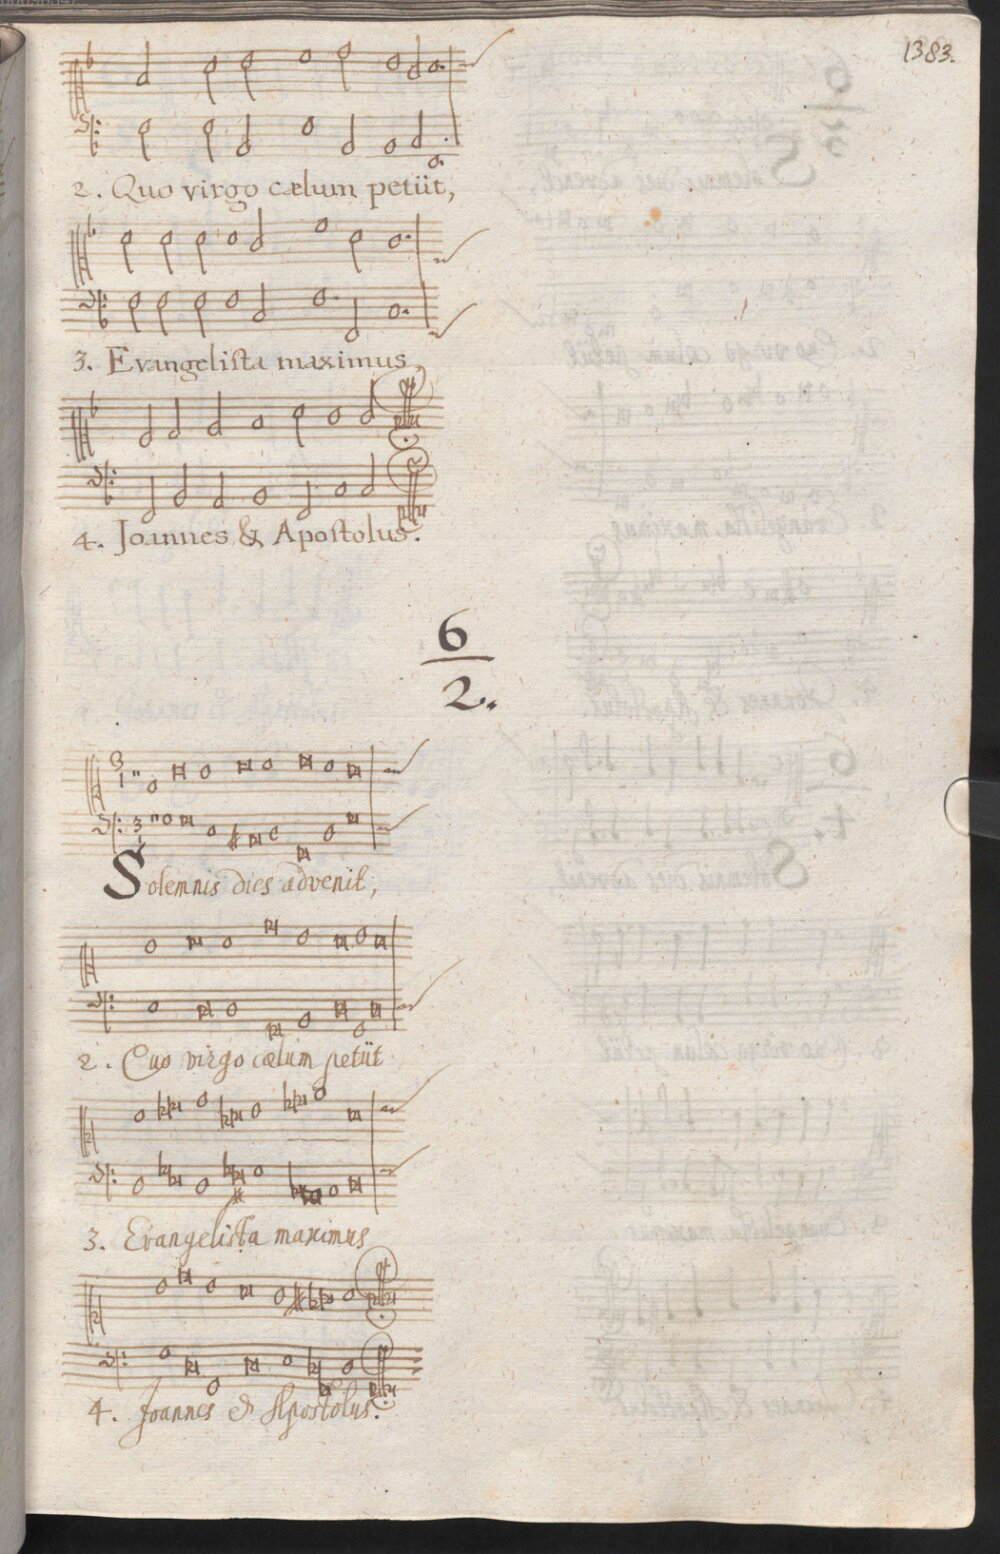 1383.
2. Quo virgo cælum petiit,
3. Evangelista maximus,
4. Joannes & Apostolus.
6
2.
Solemnis dies advenit,
2. Quo virgo cælum petiit
3. Evangelista maximus
4. Joannes & Apostolus.